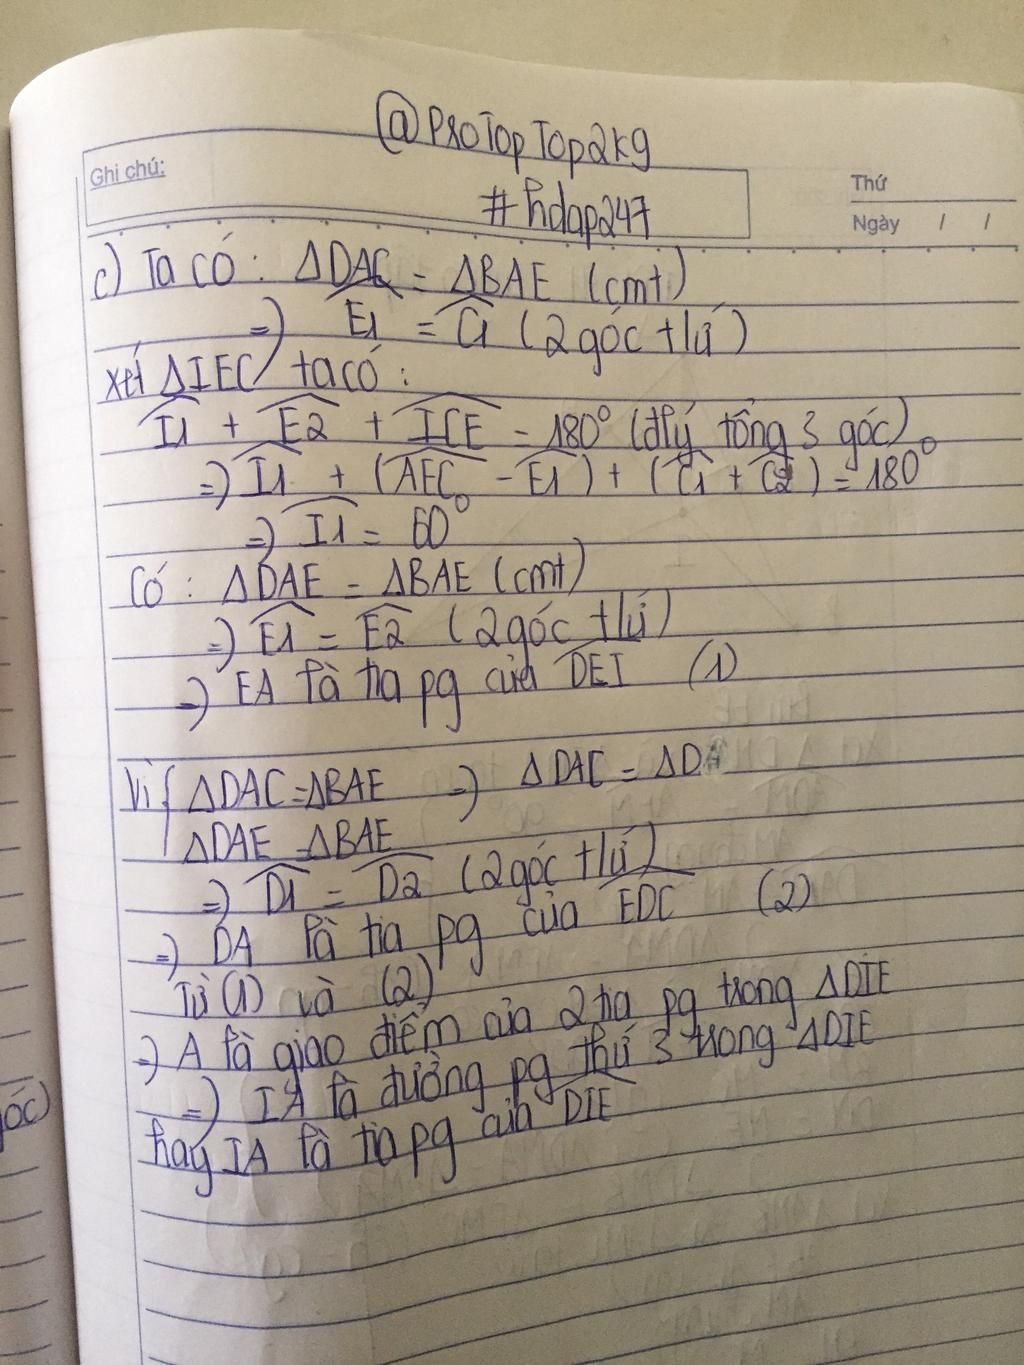 @ProTopTop2k9
Ghi chú:
#hdap247
Thứ
Ngày / /
c) Ta có : ΔDAC = ΔBAE (cmt)
=) Ê1 = Ĉ1 (2 góc tứ)
xét ΔIEC ta có :
Î1 + Ê2 + ICE = 180° (đlý tổng 3 góc)
=) Î1 + (AEC - Ê1) + (Ĉ1 + Ĉ2) = 180°
=) Î1 = 60°
Có : ΔDAE = ΔBAE (cmt)
=) Ê1 = Ê2 (2 góc tứ)
=) EA là tia pg của DEI (1)
Vì { ΔDAC = ΔBAE =) ΔDAC = ΔDA
ΔDAE = ΔBAE
=) D1 = D2 (2 góc tứ)
=) DA là tia pg của EDC (2)
Từ (1) và (2)
=) A là giao điểm của 2 tia pg trong ΔDIE
=) IA là đường pg thứ 3 trong ΔDIE
hay IA là tia pg của DIE
góc)